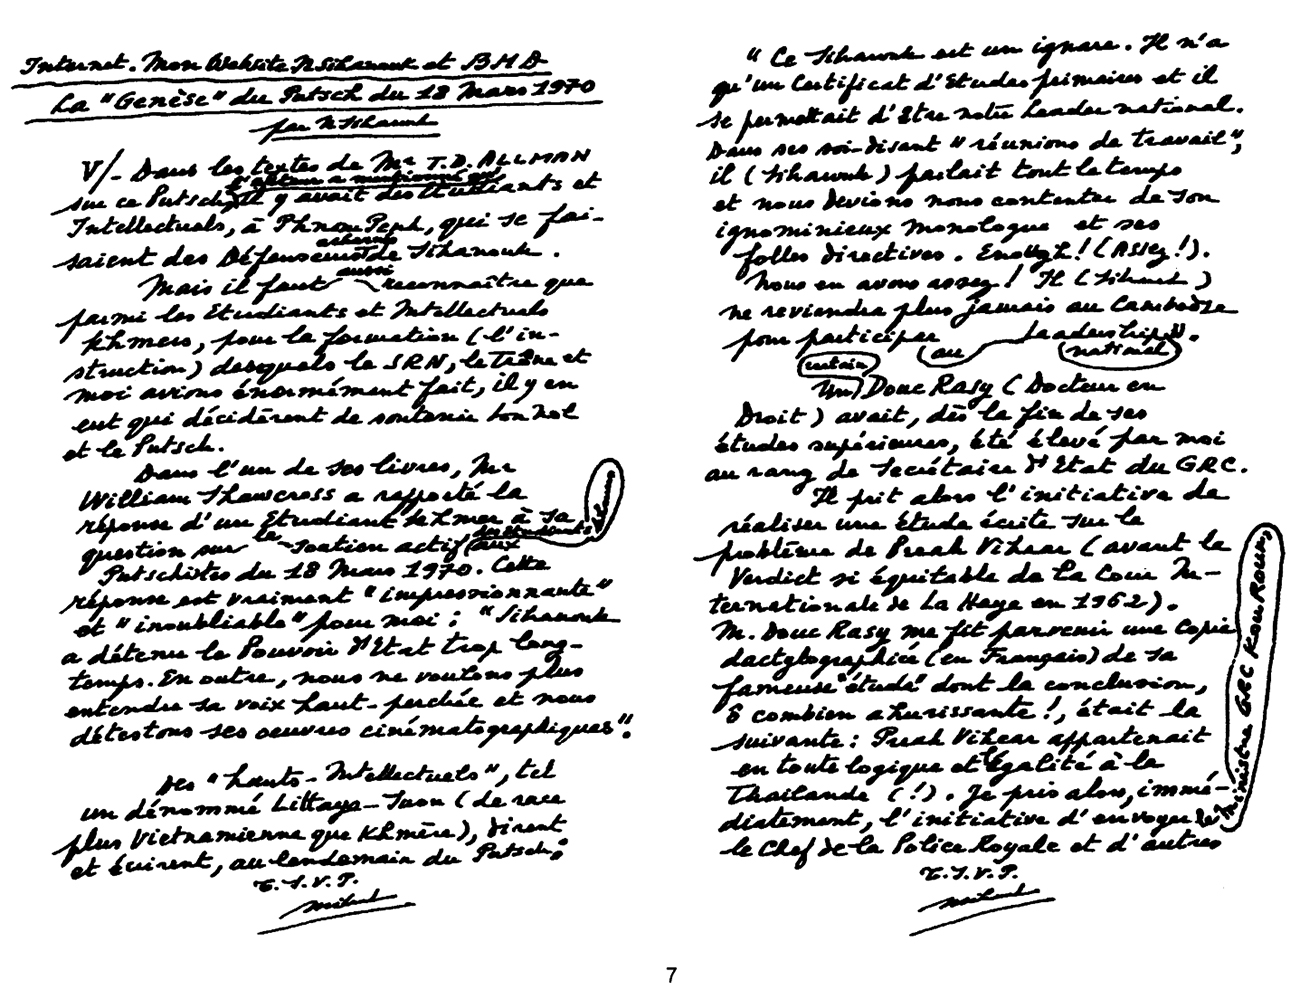 Internet. Mon Website N Sihanouk et BMD
La "Genèse" du Putsch du 18 Mars 1970
par N Sihanouk
V/- Dans les textes de Mr T.D. ALLMAN
l'auteur a mentionné qu'
sur ce Putsch, il y avait des Etudiants et
Intellectuels, à Phnom Penh, qui se fai-
acharnés
saient des Défenseurs de Sihanouk.
aussi
Mais il faut reconnaître que
parmi les Etudiants et Intellectuels
Khmers, pour la formation (l'in-
struction) desquels le SRN, le Trône et
moi avions énormément fait, il y en
eut qui décidèrent de soutenir Lon Nol
et le Putsch.
Dans l'un de ses livres, Mr
William Shawcross a rapporté la
réponse d'un Etudiant Khmer à sa
question sur le soutien actif des étudiants khmers aux
Putschistes du 18 Mars 1970. Cette
réponse est vraiment "impressionnante"
et "inoubliable" pour moi : "Sihanouk
a détenu le Pouvoir d'Etat trop long-
temps. En outre, nous ne voulons plus
entendre sa voix haut-perchée et nous
détestons ses oeuvres cinématographiques".
Des "hauts-Intellectuels", tel
un dénommé Littaye-Suon (de race
plus Vietnamienne que Khmère), dirent
et écrirent, au lendemain du Putsch :
T.S.V.P.
"Ce Sihanouk est un ignare. Il n'a
qu'un Certificat d'Etudes primaires et il
se permettait d'Etre notre Leader national.
Dans ses soi-disant "réunions de travail",
il (Sihanouk) parlait tout le temps
et nous devions nous contenter de son
ignominieux monologue et ses
folles directives. Enough ! (Assez !).
Nous en avons assez ! Il (Sihanouk)
ne reviendra plus jamais au Cambodge
pour participer au Leadership national".
certain
Un Douc Rasy (Docteur en
Droit) avait, dès la fin de ses
études supérieures, été élevé par moi
au rang de Secrétaire d'Etat du GRC.
Il prit alors l'initiative de
réaliser une étude écrite sur le
problème de Preah Vihear (avant le
Verdict si équitable de La Cour In-
ternationale de La Haye en 1962).
M. Douc Rasy me fit parvenir une copie
dactylographiée (en Français) de sa
fameuse "étude" dont la conclusion,
ô combien ahurissante !, était la
suivante : Preah Vihear appartenait
en toute logique et légalité à la
Thaïlande (!). Je pris alors, immé-
diatement, l'initiative d'envoyer le Ministre GRC KOU ROUN,
le Chef de la Police Royale et d'autres
T.S.V.P.
7